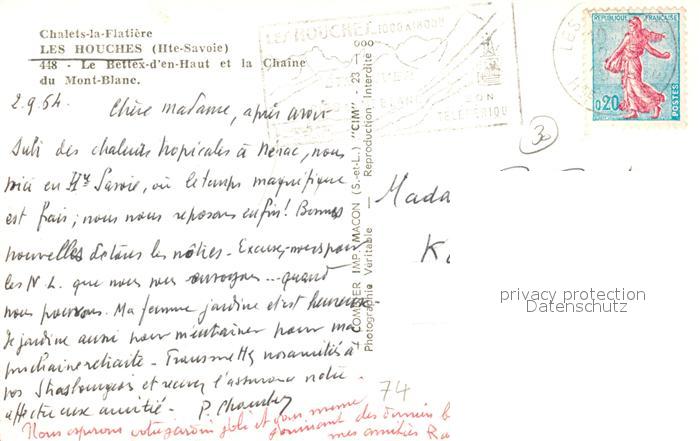 Chalets-la-Flatière
LES HOUCHES (Hte-Savoie)
448 - Le Bettex-d'en-Haut et la Chaîne
du Mont-Blanc.
2.9.64. Chère madame, après avoir
subi des chaleurs tropicales à Nérac, nous
voici en Hte Savoie, où le temps magnifique
est frais ; nous nous reposons enfin ! Bonnes
nouvelles de tous les nôtres - Excusez-nous pour
les N. L. que nous vous envoyons... quand
nous pouvons. Ma femme jardine et est heureuse.
Je jardine aussi pour m'entraîner pour ma
prochaine retraite - Transmettez nos amitiés à
vos Strasbourgeois et recevez l'assurance notre
affectueuse amitié. P.
Nous espérons votre jardin joli et vous même
jouissant des derniers b
mes amitiés
COMBIER IMP. MACON (S.-et-L.) "CIM"
Photographie Véritable — Reproduction Interdite
LES HOUCHES 1000 A 1800M
REPUBLIQUE FRANÇAISE
0,20
POSTES
30
Mada
K
74
privacy protection
Datenschutz